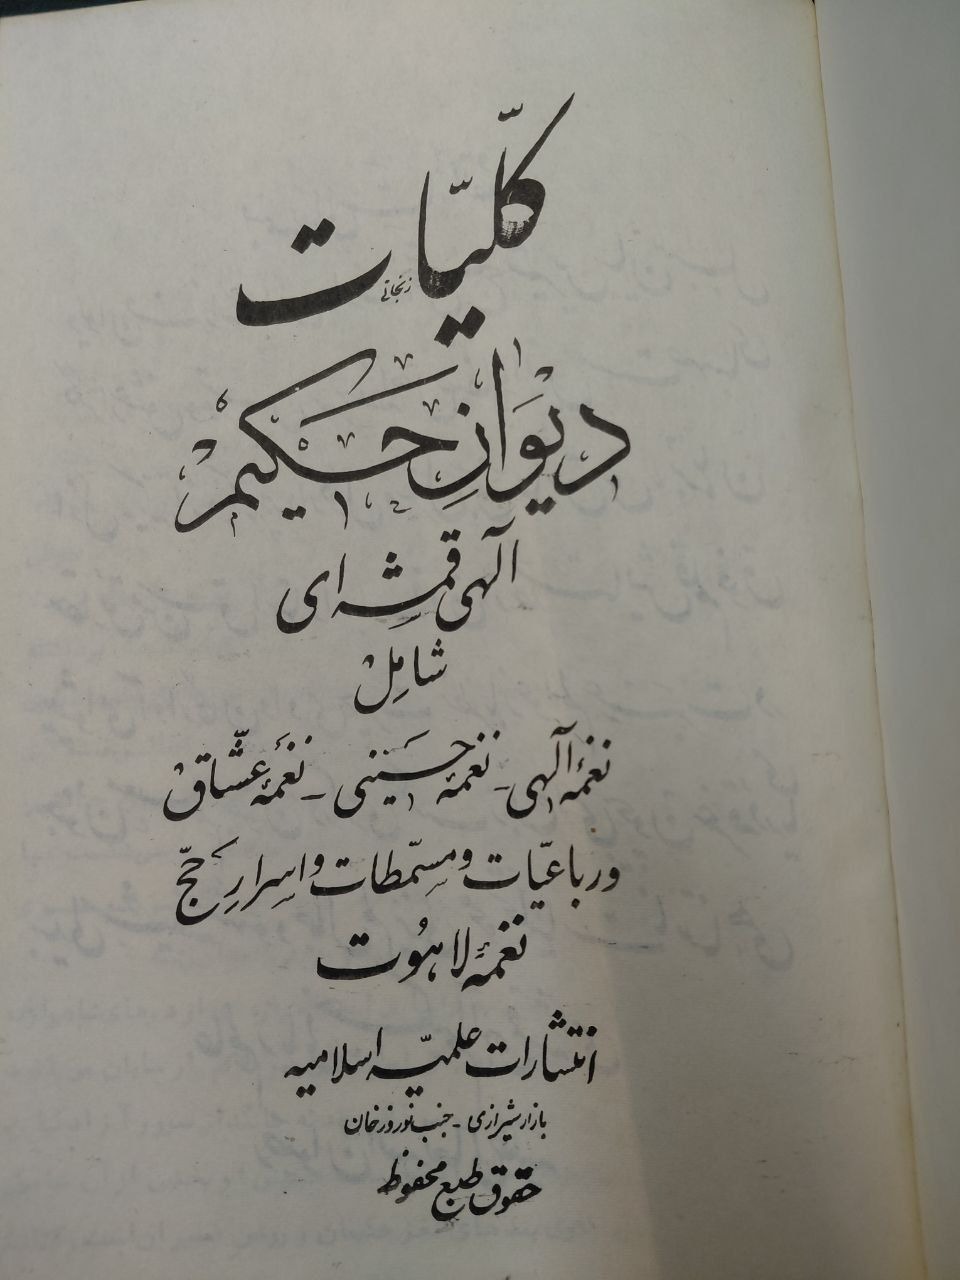 کلّیّات
زنجانی
دیوانِ حکیم
الٓهی قمشِه ای
شامِلْ
نغمهٔ الٓهی - نغمهٔ حسَینی - نغمَهٔ عشّاقْ
و رباعیّات و مسمّطات و اسرارِ حجّ
نغمهٔ لاهُوت
انتشارات علمیّه اسلامیه
بازار شیرازی - جنب نوروزخان
حقوق طبع محفوظ